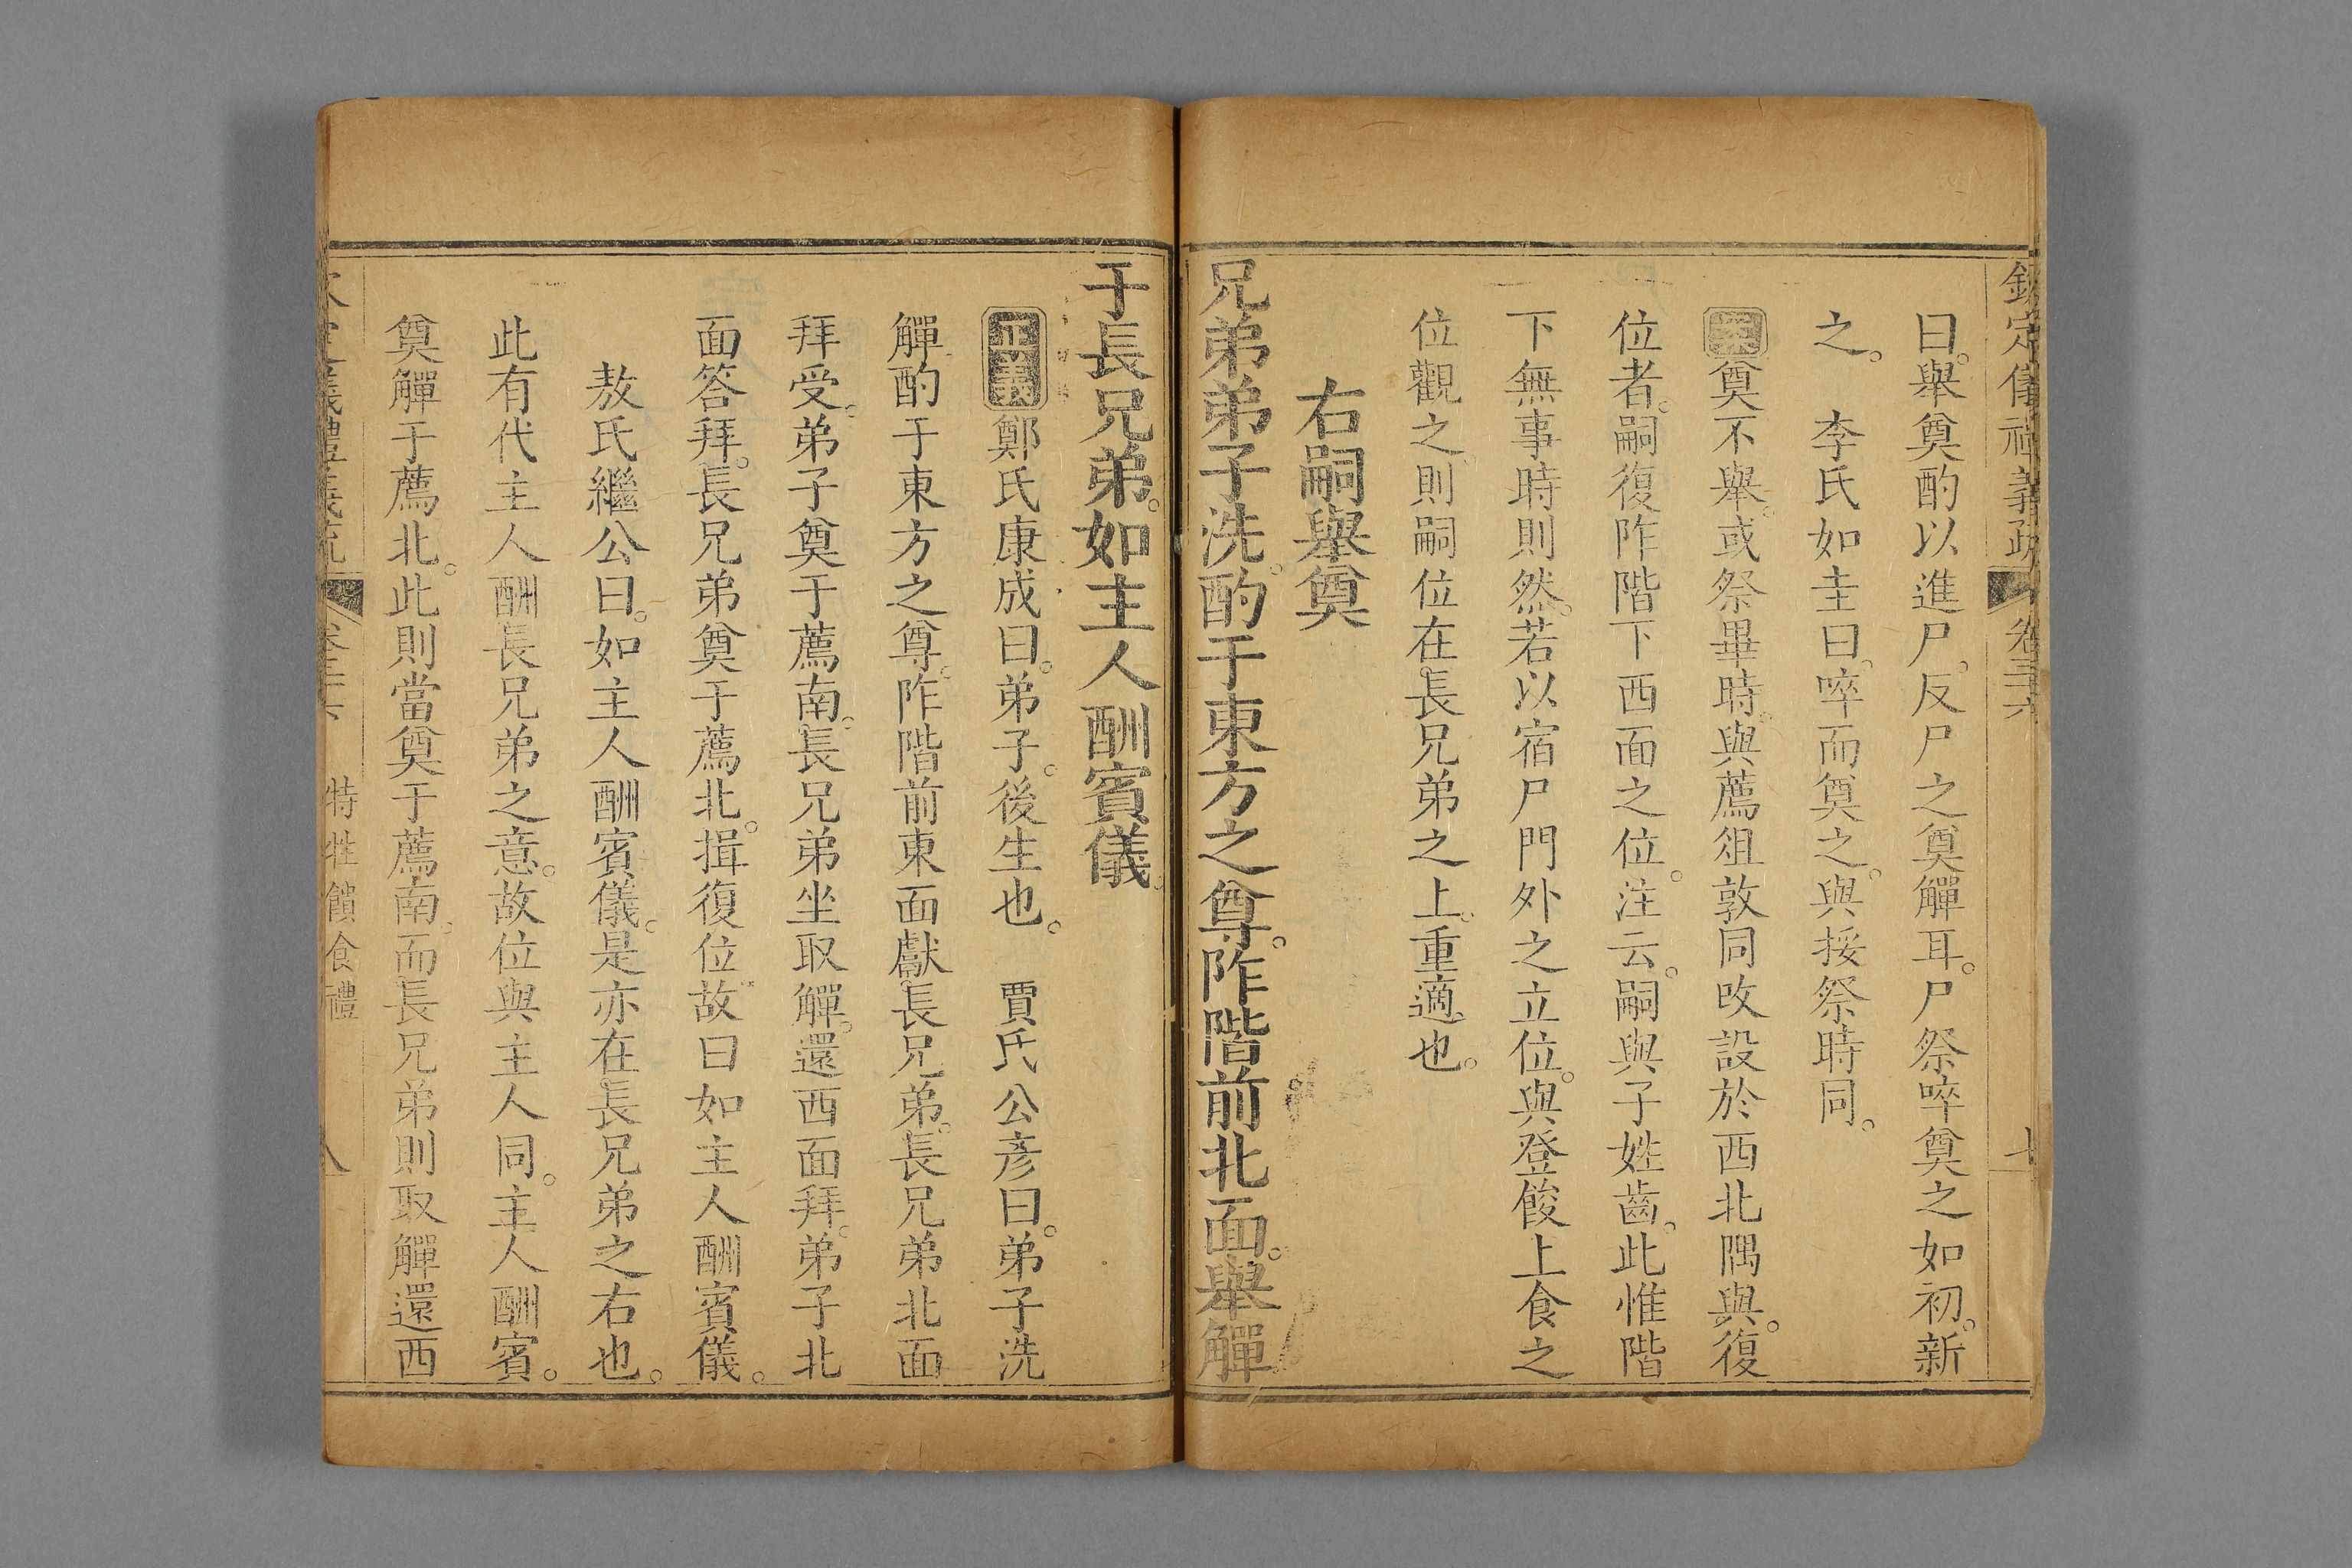 欽定儀禮義疏 卷三十六 七
曰。舉奠酌以進尸。反尸之奠觶耳。尸祭啐奠之如初。新
之。 李氏如圭曰。啐而奠之。與挼祭時同。
案奠不舉。或祭畢時。與薦俎敦同改設於西北隅與。復
位者。嗣復阼階下西面之位。注云。嗣與子姓齒。此惟階
下無事時則然。若以宿尸門外之立位。與登餕上食之
位觀之。則嗣位在長兄弟之上。重適也。
右嗣舉奠
兄弟弟子洗。酌于東方之尊。阼階前北面。舉觶
于長兄弟。如主人酬賓儀。
正義鄭氏康成曰。弟子。後生也。 賈氏公彥曰。弟子洗
觶。酌于東方之尊。阼階前東面獻長兄弟。長兄弟北面
拜受。弟子奠于薦南。長兄弟坐取觶。還西面拜。弟子北
面答拜。長兄弟奠于薦北。揖復位。故曰如主人酬賓儀。
敖氏繼公曰。如主人酬賓儀。是亦在長兄弟之右也。
此有代主人酬長兄弟之意。故位與主人同。主人酬賓。
奠觶于薦北。此則當奠于薦南。而長兄弟則取觶還西
儀禮義疏 特牲饋食禮 八